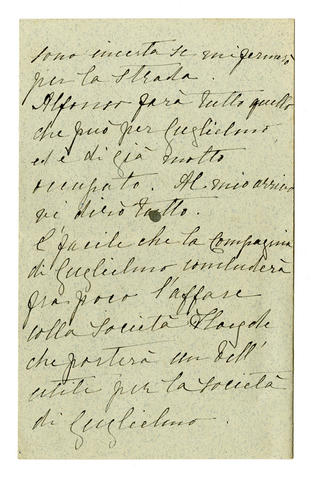 sono incerta se mi fermerò
per la strada.
Alfonso farà tutto quello
che può per Guglielmo
ed è di già molto
occupato. Al mio arrivo
vi dirò tutto.
E' facile che la Compagnia
di Guglielmo concluderà
fra poco l'affare
colla Società
che porterà un bell'
utile per la società
di Guglielmo.